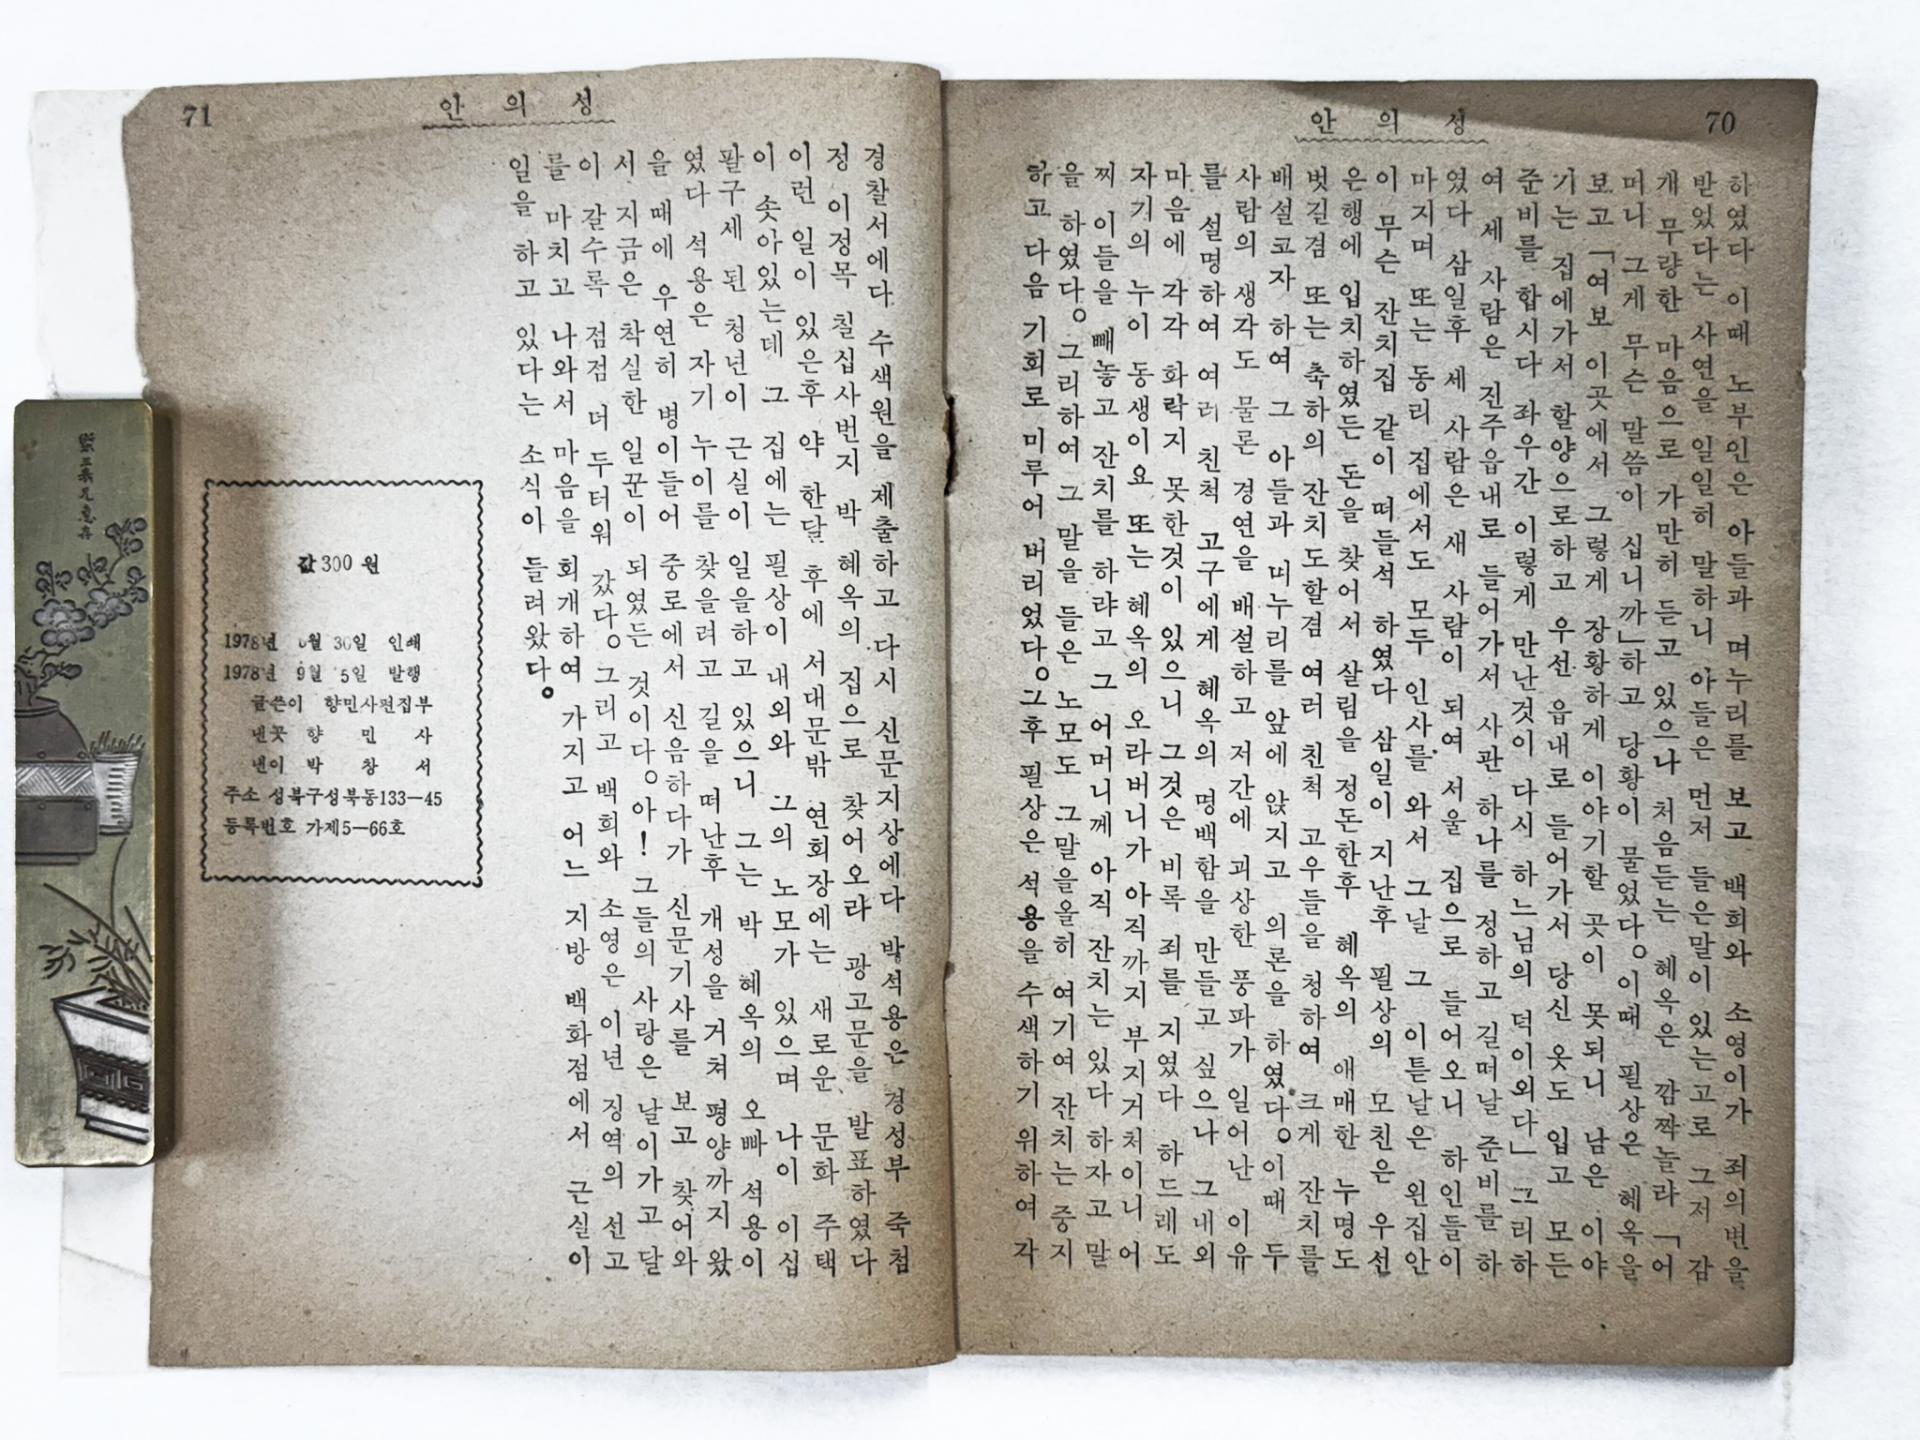 70
안의성
하였다 이때 노부인은 아들과 며누리를 보고 백희와 소영이가 죄의변을
받았다는 사연을 일일히 말하니 아들은 먼저 들은말이 있는고로 그저 감
개 무량한 마음으로 가만히 듣고 있으나 처음듣는 혜옥은 깜짝놀라 「어
머니 그게 무슨 말씀이 십니까」하고 당황이 물었다。이때 필상은 혜옥을
보고 「여보 이곳에서 그렇게 장황하게 이야기할 곳이 못되니 남은 이야
기는 집에가서 할양으로하고 우선 읍내로 들어가서 당신 옷도 입고 모든
준비를 합시다 좌우간 이렇게 만난것이 다시 하느님의 덕이외다」 그리하
여 세 사람은 진주읍내로 들어가서 사관 하나를 정하고 길떠날 준비를 하
였다 삼일후 세 사람은 새 사람이 되여 서울 집으로 들어오니 하인들이
마지며 또는 동리 집에서도 모두 인사를 와서 그날 그 이튿날은 왼집안
이 무슨 잔치집 같이 떠들석 하였다 삼일이 지난후 필상의 모친은 우선
은행에 입치하였든 돈을 찾어서 살림을 정돈한후 혜옥의 애매한 누명도
벗길겸 또는 축하의 잔치도할겸 여러 친척 고우들을 청하여 크게 잔치를
배설코자 하여 그 아들과 며누리를 앞에 앉지고 의론을 하였다。이때 두
사람의 생각도 물론 경연을 배설하고 저간에 괴상한 풍파가 일어난 이유
를 설명하여 여러 친척 고구에게 혜옥의 명백함을 만들고 싶으나 그내외
마음에 각각 화락지 못한것이 있으니 그것은 비록 죄를 지였다 하드래도
자기의 누이 동생이요 또는 혜옥의 오라버니가 아직까지 부지거처이니 어
찌 이들을 빼놓고 잔치를 하랴고 그 어머니께 아직 잔치는 있다 하자고 말
을 하였다。그리하여 그 말을 들은 노모도 그말을올히 여기여 잔치는 중지
하고 다음 기회로 미루어 버리었다。그후 필상은 석용을 수색하기 위하여 각
71
안의성
경찰서에다 수색원을 제출하고 다시 신문지상에다 박석용은 경성부 죽첨
정 이정목 칠십사번지 박 혜옥의 집으로 찾어오랴 광고문을 발표하였다
이런 일이 있은후 약 한달 후에 서대문밖 연회장에는 새로운 문화 주택
이 솟아있는데 그 집에는 필상이 내외와 그의 노모가 있으며 나이 이십
팔구세 된 청년이 근실이 일을하고 있으니 그는 박 혜옥의 오빠 석용이
였다 석용은 자기 누이를 찾을려고 길을 떠난후 개성을 거쳐 평양까지 왔
을 때에 우연히 병이들어 중로에서 신음하다가 신문기사를 보고 찾어와
서 지금은 착실한 일꾼이 되였든 것이다。아! 그들의 사랑은 날이가고 달
이 갈수록 점점 더 두터워 갔다。그리고 백희와 소영은 이년 징역의 선고
를 마치고 나와서 마음을 회개하여 가지고 어느 지방 백화점에서 근실이
일을 하고 있다는 소식이 들려왔다。
값300원
1978년 월 30일 인쇄
1978년 9월 5일 발행
글쓴이 향민사편집부
낸곳 향민사
낸이 박창서
주소 성북구성북동133—45
등록번호 가제5—66호